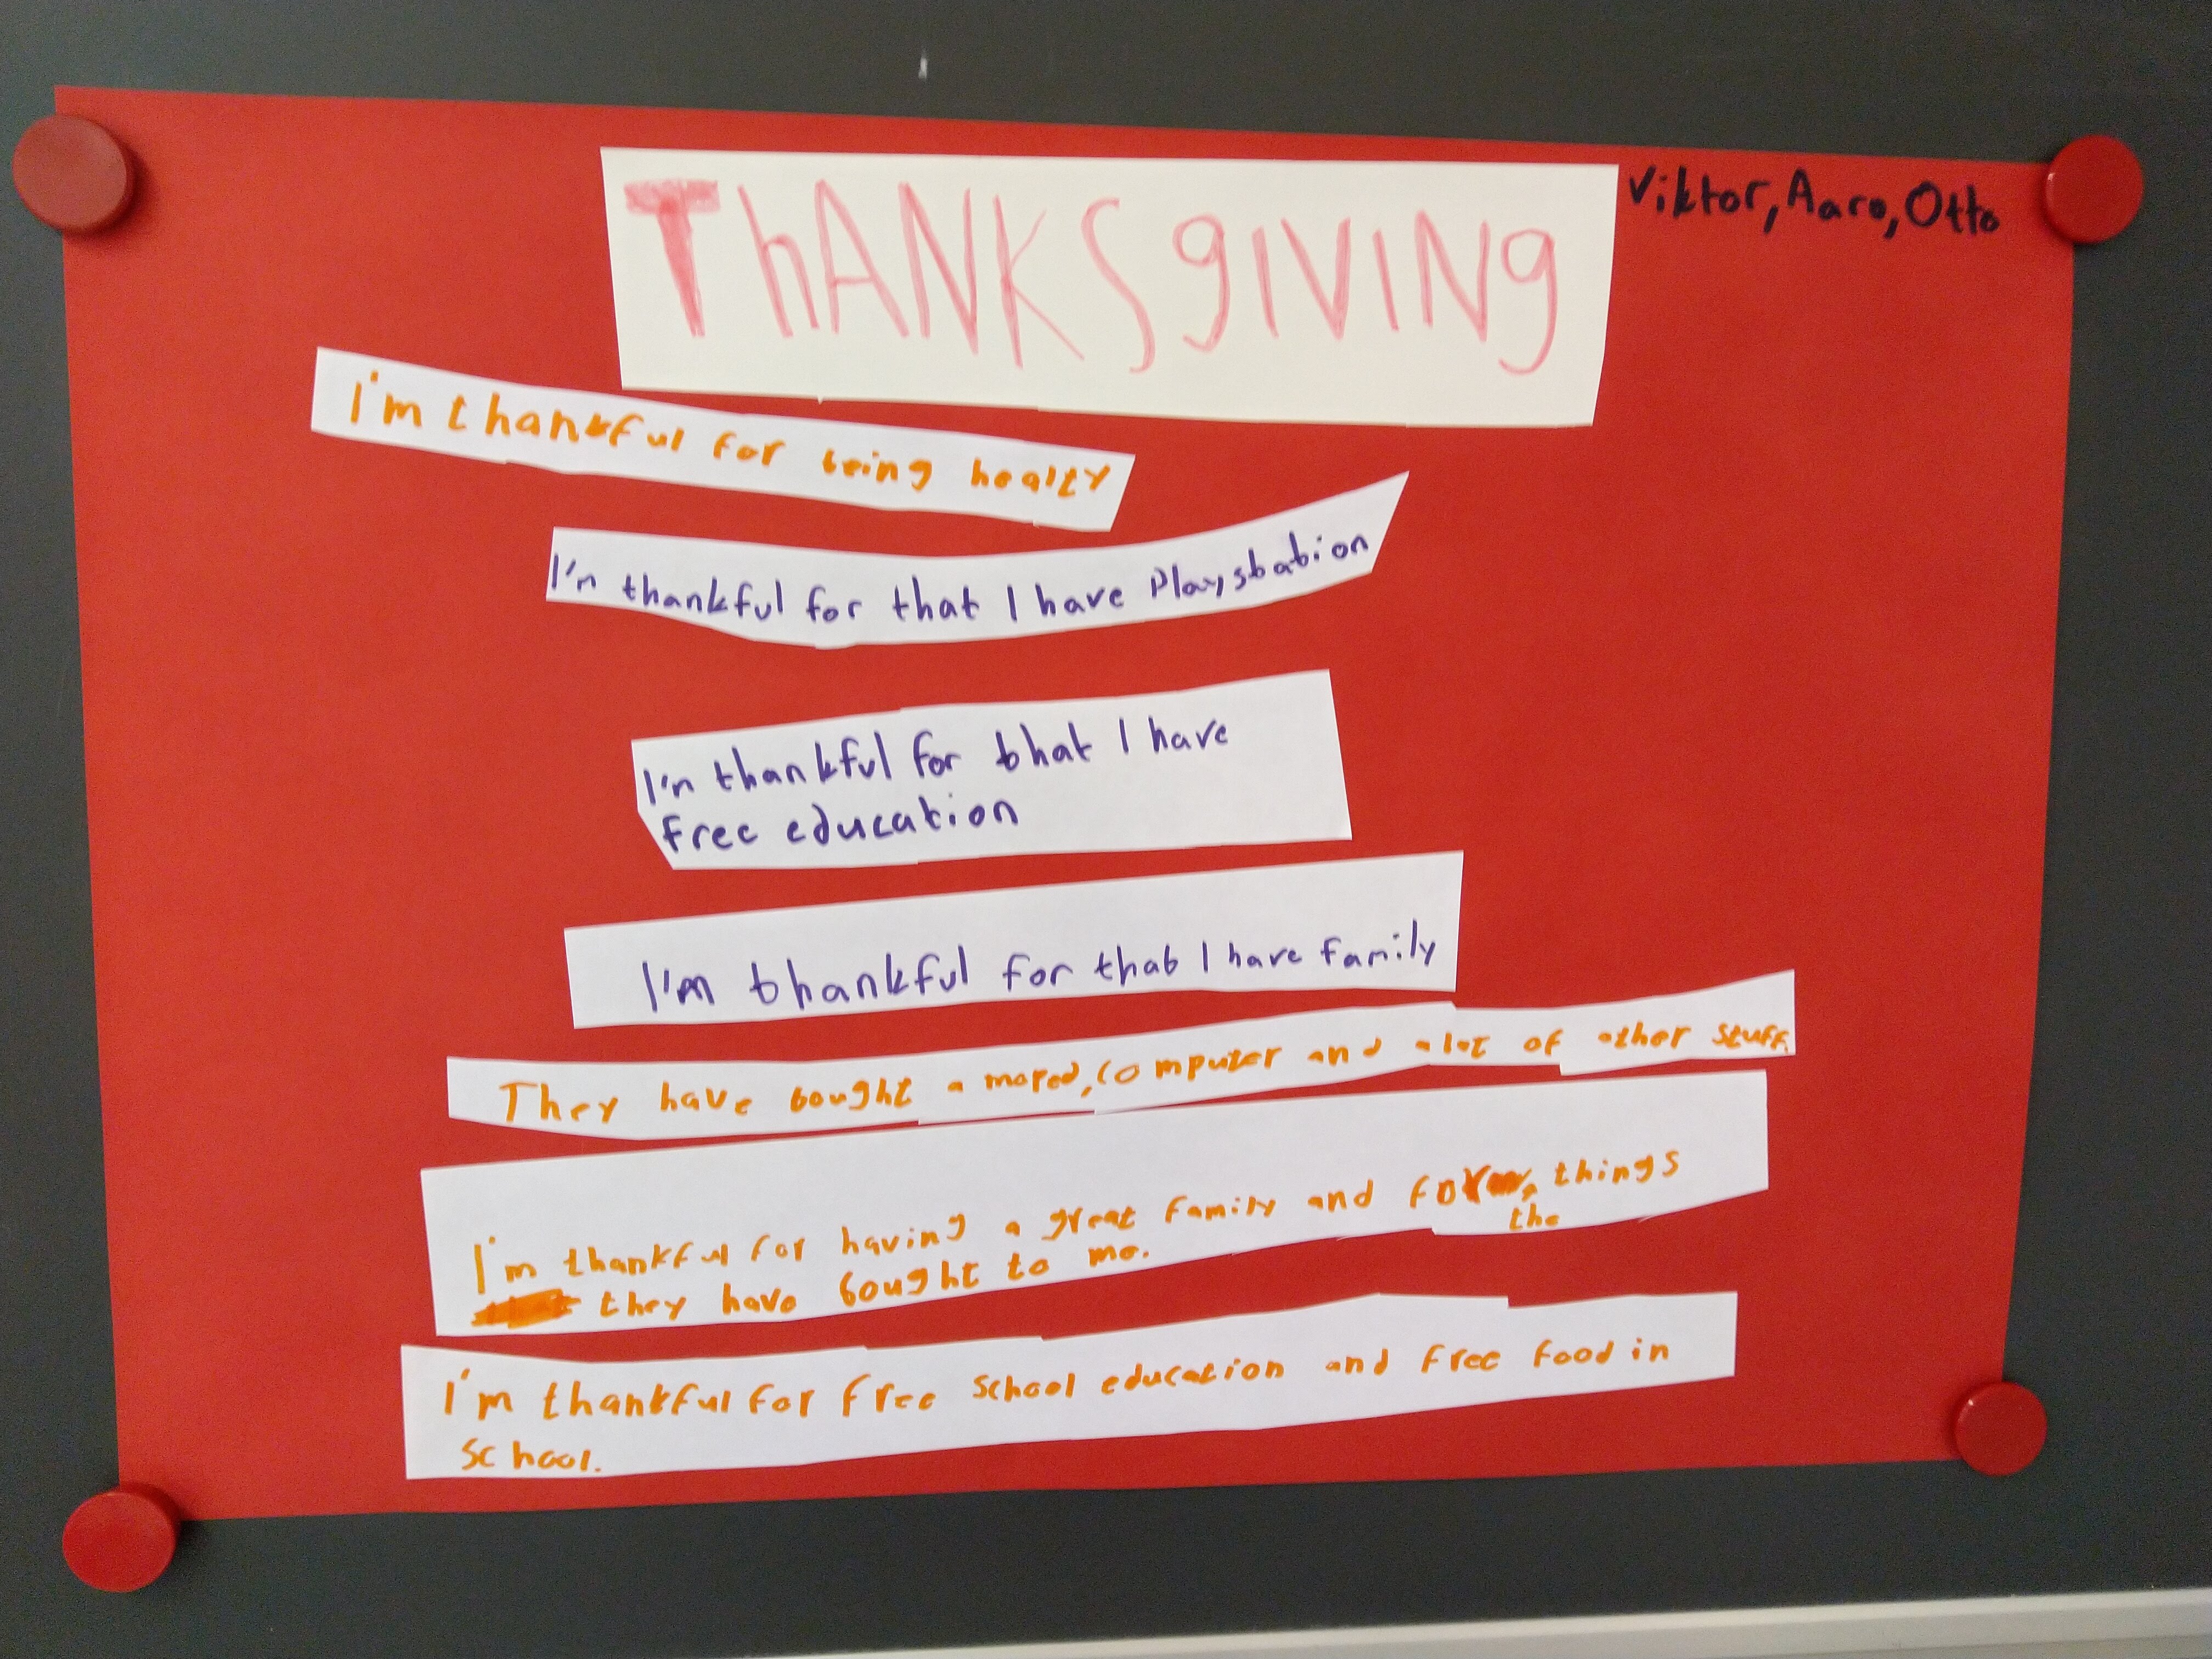 ThANKSgIVINg
Viktor, Aaro, Otto
I'm thankful for being healty
I'n thankful for that I have Playstation
I'n thankful for that I have
free education
I'm thankful for that I have family
They have bought a moped, computer and a lot of other stuff.
I'm thankful for having a great family and for things
the
they have bought to me.
I'm thankful for free school education and free food in
school.